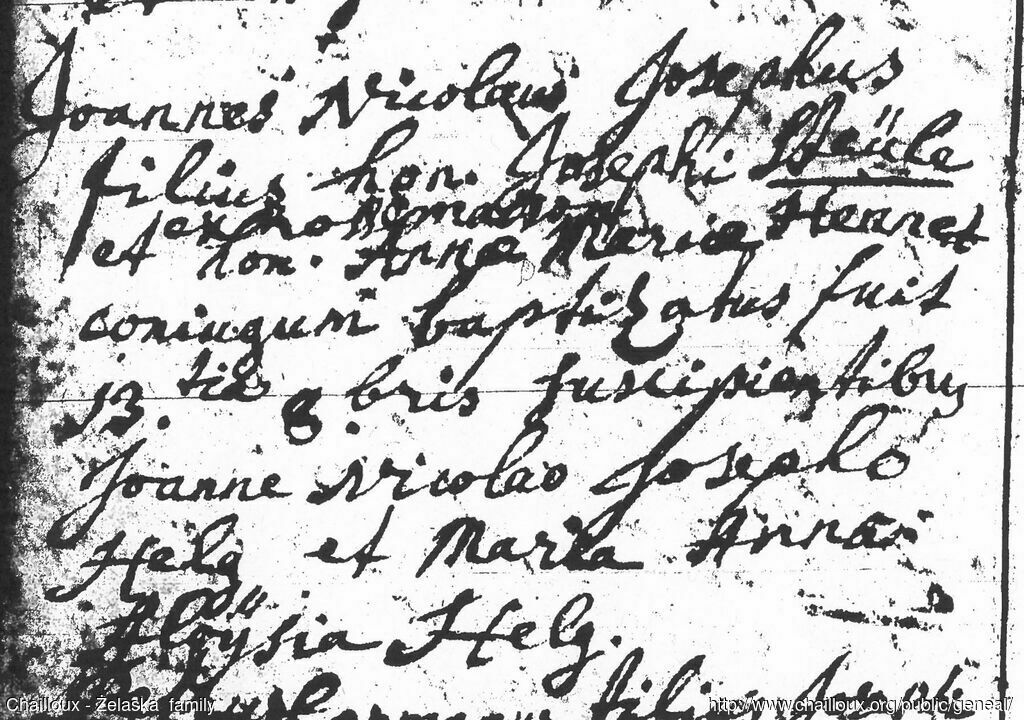 Joannes Nicolaus Josephus
filius hon. Josephi
et hon. Annæ Mariæ Hennet
coniugum baptizatus fuit
13.tia 8.bris suscipientibus
Joanne Nicolao Josepho
Helg et Maria Anna
Aloÿsia Helg.
filius Josephi
Chailloux - Żelaska family
http://www.chailloux.org/public/geneal/